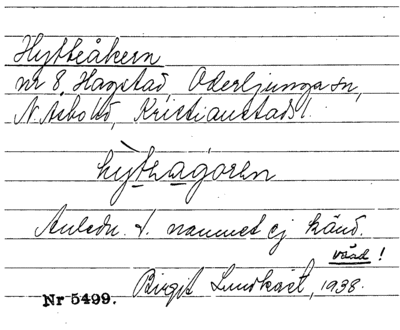 Hytteåkern
nr 8, Hagstad, Oderljunga sn,
N. Åsbo hd, Kristianstads l.
hỳteagơren
Anledn. t. namnet ej känd.
vård!
Birgit Lundkvist, 1938.
Nr 5499.